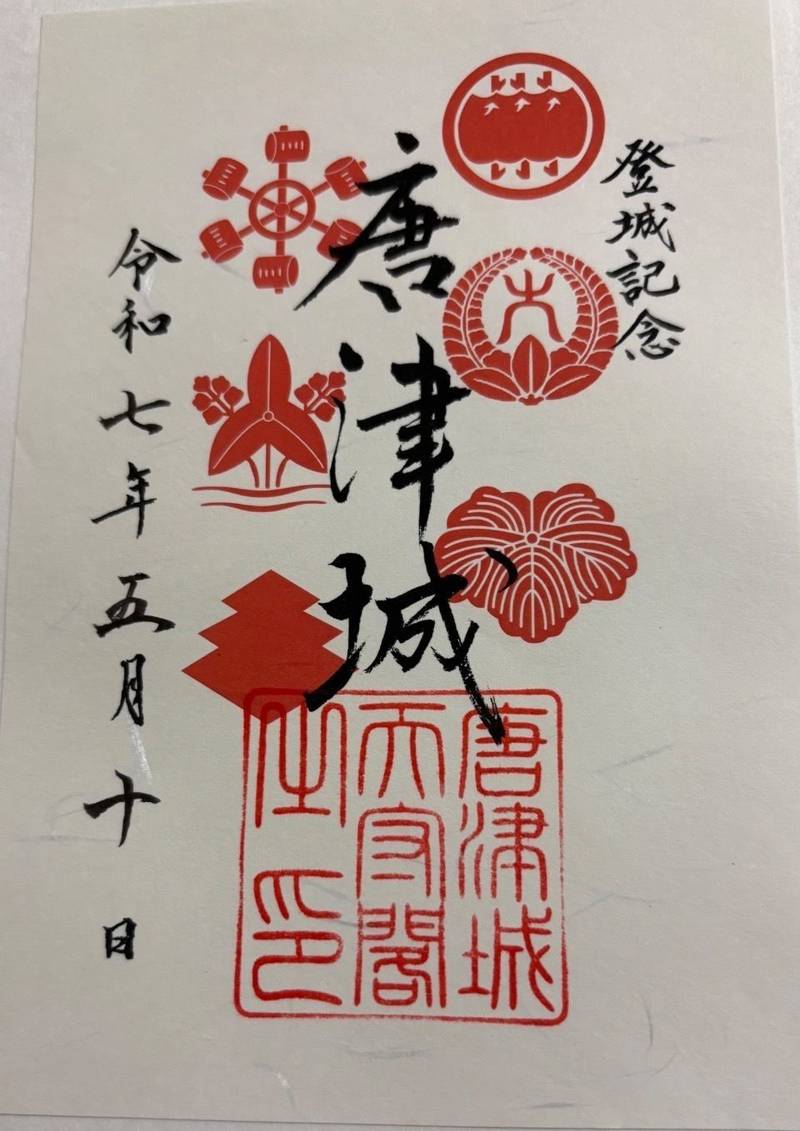 登城記念
唐津城
令和七年五月十日
唐津城
天守閣
之印